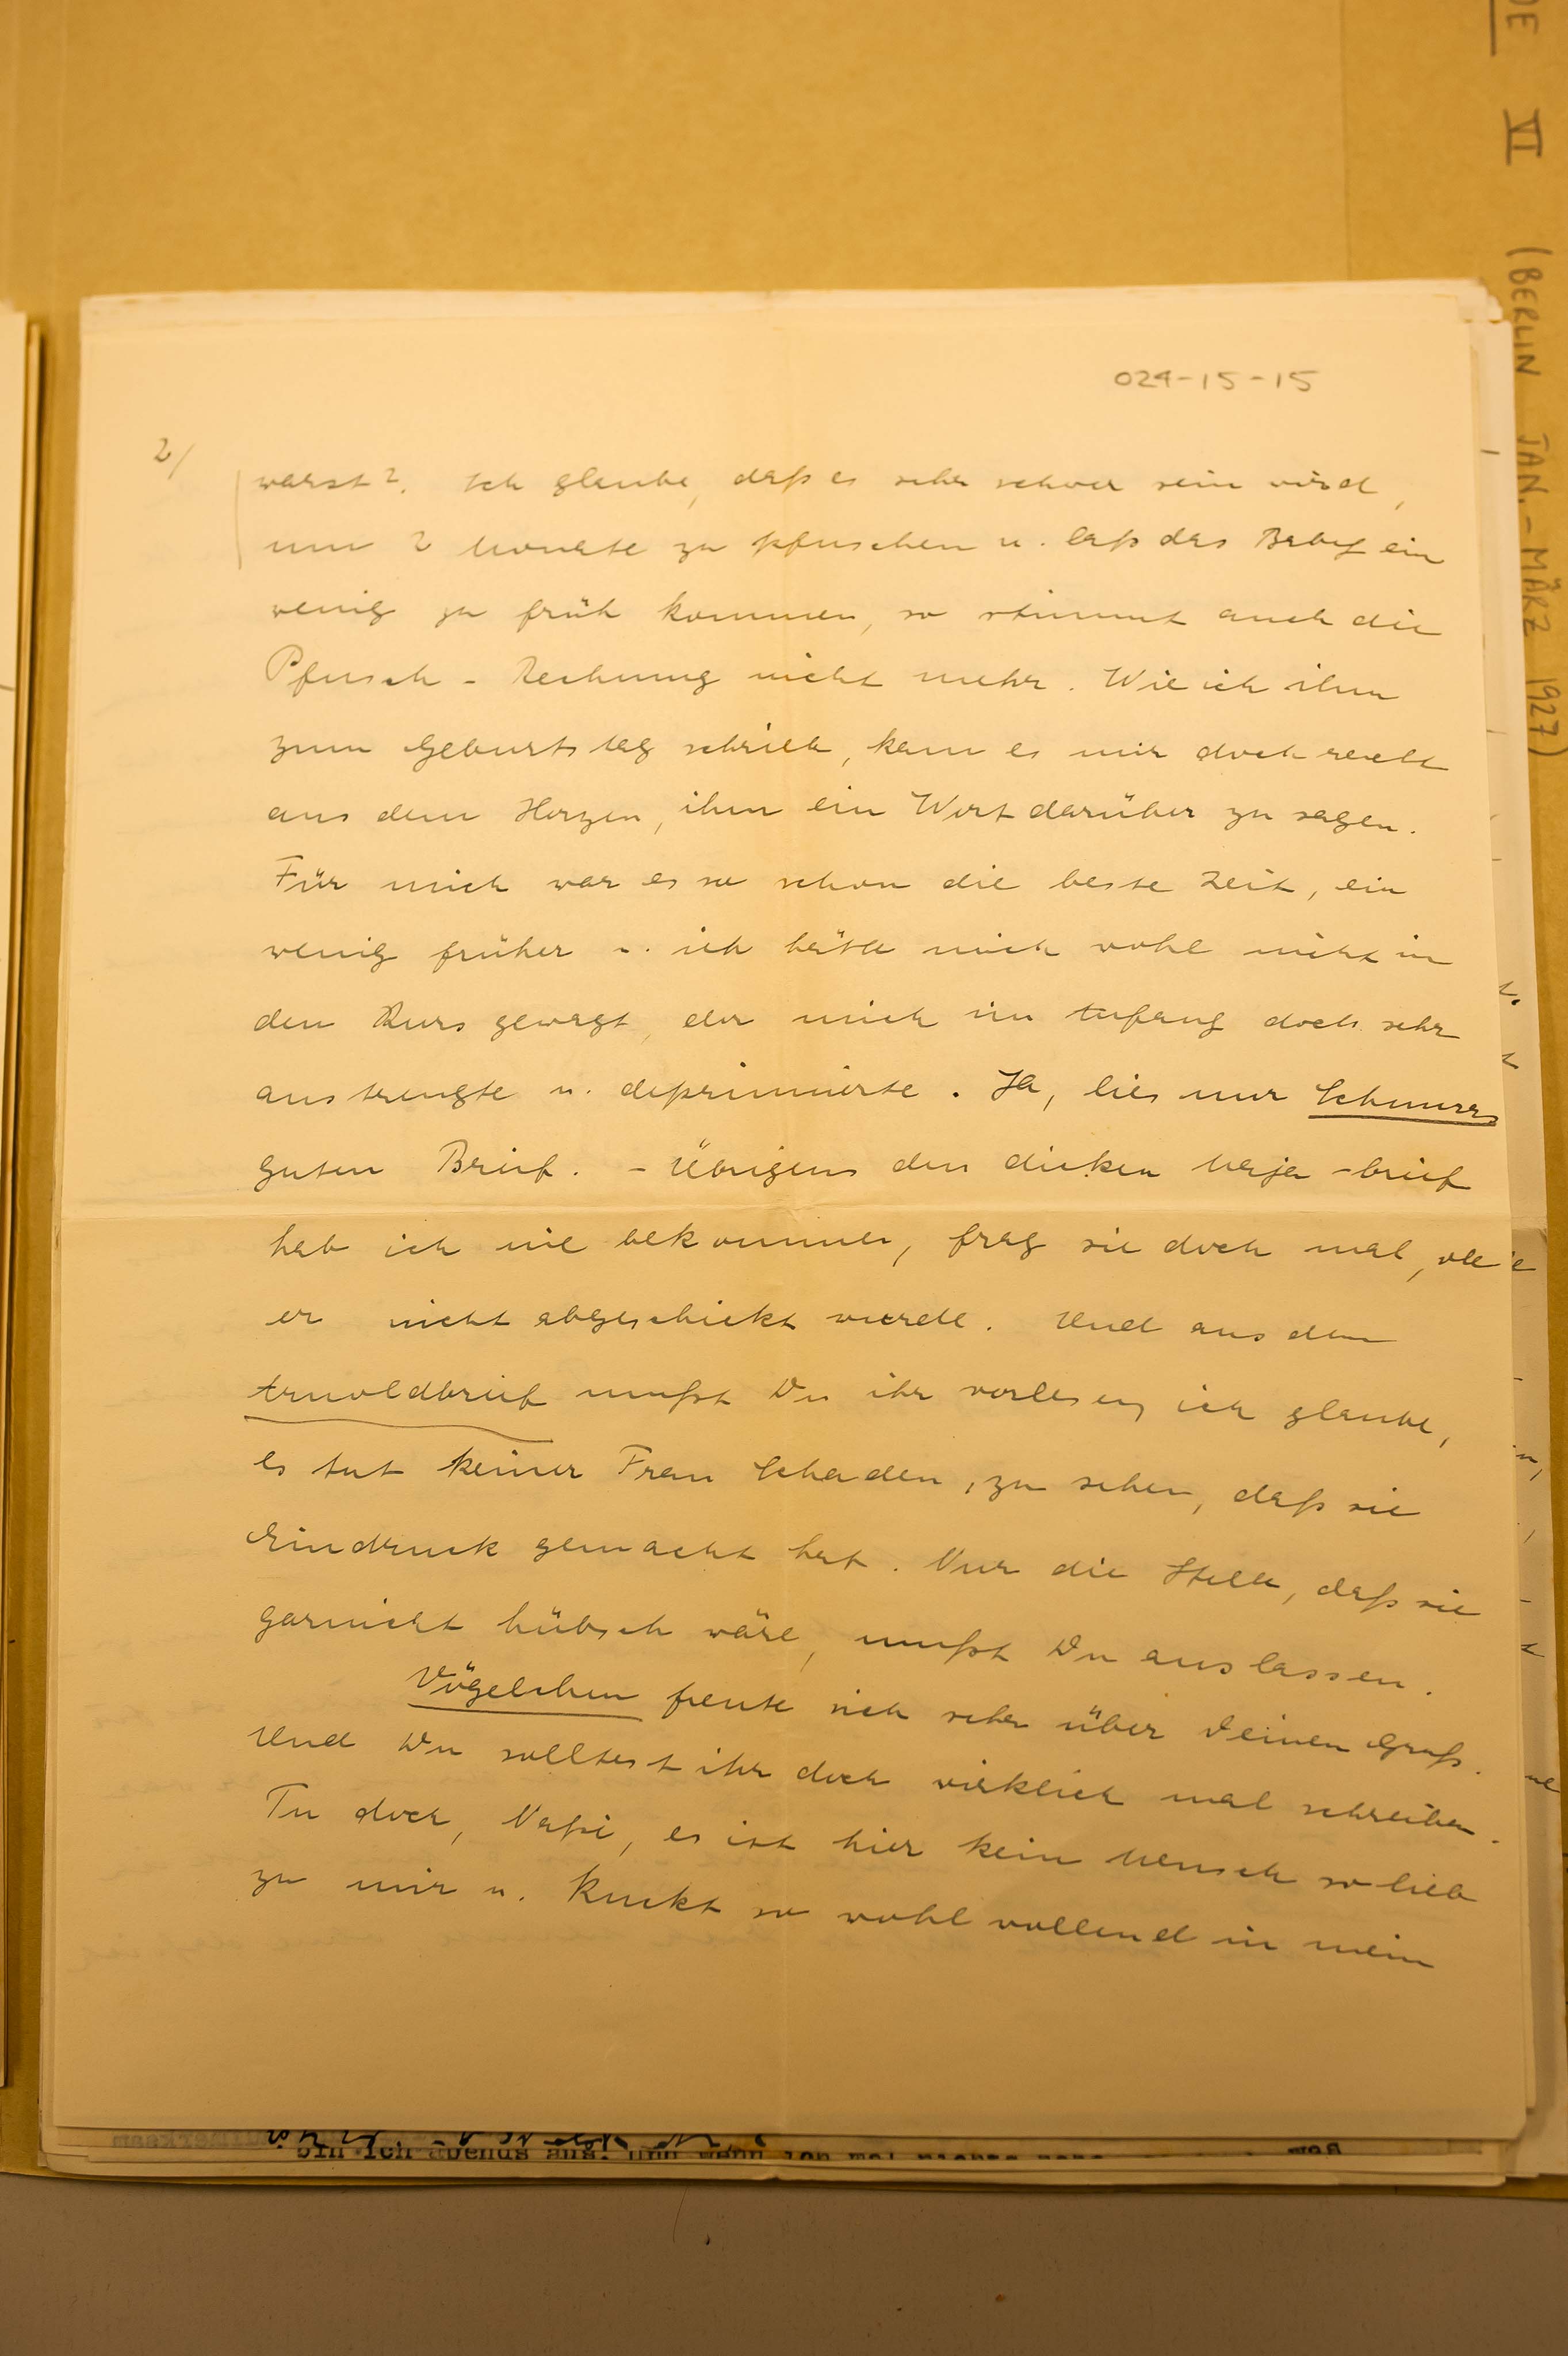 024-15-15
2/
warst?. Ich glaube, daß es sehr schwer sein wird,
um 2 Monate zu pfuschen u. laß das Baby ein
wenig zu früh kommen, so stimmt auch die
Pfusch-Rechnung nicht mehr. Wie ich ihm
zum Geburtstag schrieb, kam es mir doch recht
aus dem Herzen, ihm ein Wort darüber zu sagen.
Für mich war es so schon die beste Zeit, ein
wenig früher u. ich hätte mich wohl nicht in
den Kurs gewagt, der mich im Anfang doch sehr
anstrengte u. deprimierte. Ja, lies nur Schnurrs
guten Brief. - Übrigens den dicken Maja-brief
hab ich nie bekommen, frag sie doch mal, ob
er nicht abgeschickt wurde. Und aus dem
Arnoldbrief mußt Du ihr vorlesen, ich glaube,
es tut keiner Frau Schaden, zu sehen, daß sie
Eindruck gemacht hat. Nur die Stelle, daß sie
garnicht hübsch wäre, mußt Du auslassen.
Vögelchen freute sich sehr über Deinen Gruß.
Und Du solltest ihr doch wirklich mal schreiben.
Tu doch, es ist hier kein Mensch so lieb
zu mir u. kuckt so wohlwollend in mein
DE VI (BERLIN JAN.-MÄRZ 1927)
bin ich abends aus, und wenn ich mal nichts